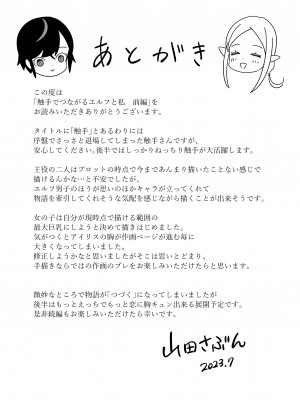 あとがき
この度は
「触手でつながるエルフと私　前編」を
お読みいただきありがとうございます。
タイトルに「触手」とあるわりには
序盤でさっさと退場してしまった触手さんですが、
安心してください。後半ではしっかりねっちり触手が大活躍します。
主役の二人はプロットの時点で今まであんまり描いたことない感じで
描けるんかな…と不安でしたが、
エルフ男子のほうが思いのほかキャラが立ってくれて
物語を牽引してくれそうな気配を感じながら描くことが出来そうです。
女の子は自分が現時点で描ける範囲の
最大巨乳にしようと決めて描きはじめました。
気がつくとアイリスの胸が作画ページが進む毎に
大きくなってしまいました。
修正しようかなと思いましたがそこは思いとどまり、
手描きならではの作画のブレをお楽しみいただけたらと思います。
微妙なところで物語が「つづく」になってしまいましたが
後半はもっとえっちでもっと恋に胸キュン出来る展開予定です。
是非続編もお楽しみいただけたら幸いです。
山田さぶん
2023.7